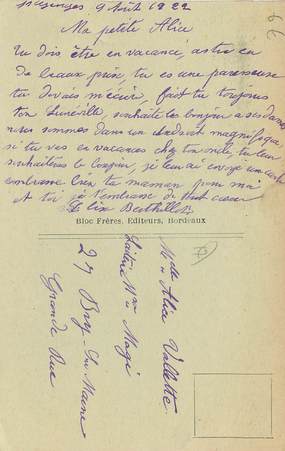 9 Août 1922
Ma petite Alice
Tu dois être en vacance, as tu eu
de beaux prix, tu es une paresseuse
tu devais m'écrire, fait tu toujours
ton Lunéville, souhaite le bonjour a ses dames
nous sommes dans un endroit magnifique
si tu vas en vacances chez ton oncle, tu leur
souhaiteras le bonjour, je leur ai envoyé une carte
embrasse bien ta maman pour moi
et toi je t'embrasse de tout cœur
Berthillot
Bloc Frères, Editeurs, Bordeaux
Melle Alice Vallette
Magi
27 Bry-sur-Marne
Grande Rue